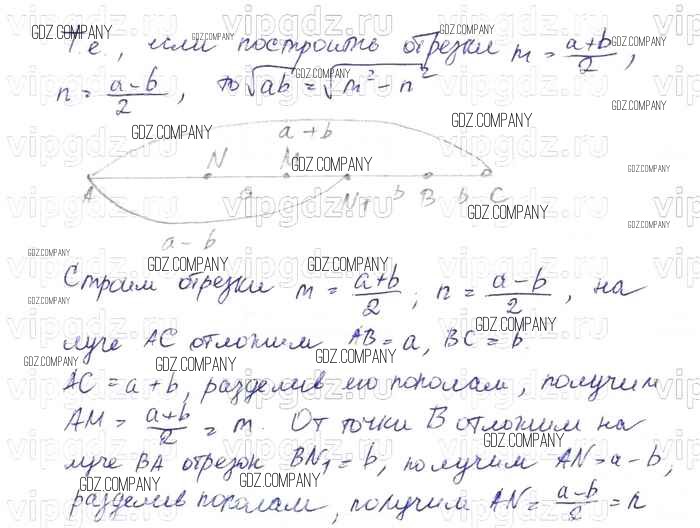 Т.е., если построить отрезки m = (a+b)/2,
n = (a-b)/2, то √ab = √m² - n²
a+b
A N M N₁ b B b C
a
a-b
Строим отрезки m = (a+b)/2; n = (a-b)/2, на
луче AC отложим AB = a, BC = b
AC = a+b, разделив его пополам, получим
AM = (a+b)/2 = m. От точки B отложим на
луче BA отрезок BN₁ = b, получим AN = a-b,
разделив пополам, получим AN = (a-b)/2 = n
GDZ.COMPANY
vipgdz.ru